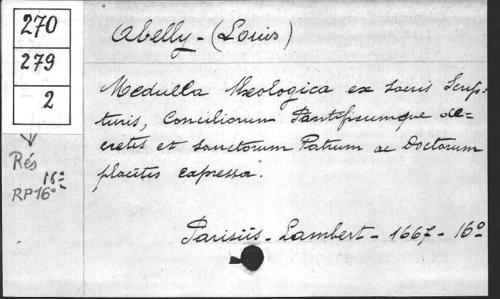 270
279
2
Rés
16º
RP16º
Abelly - (Louis)
Medulla theologica ex sacris Scrip-
turis, Conciliorum Pontificumque de-
cretis et sanctorum Patrum ac Doctorum
placitis expressa.
Parisiis - Lambert - 1667 - 16º